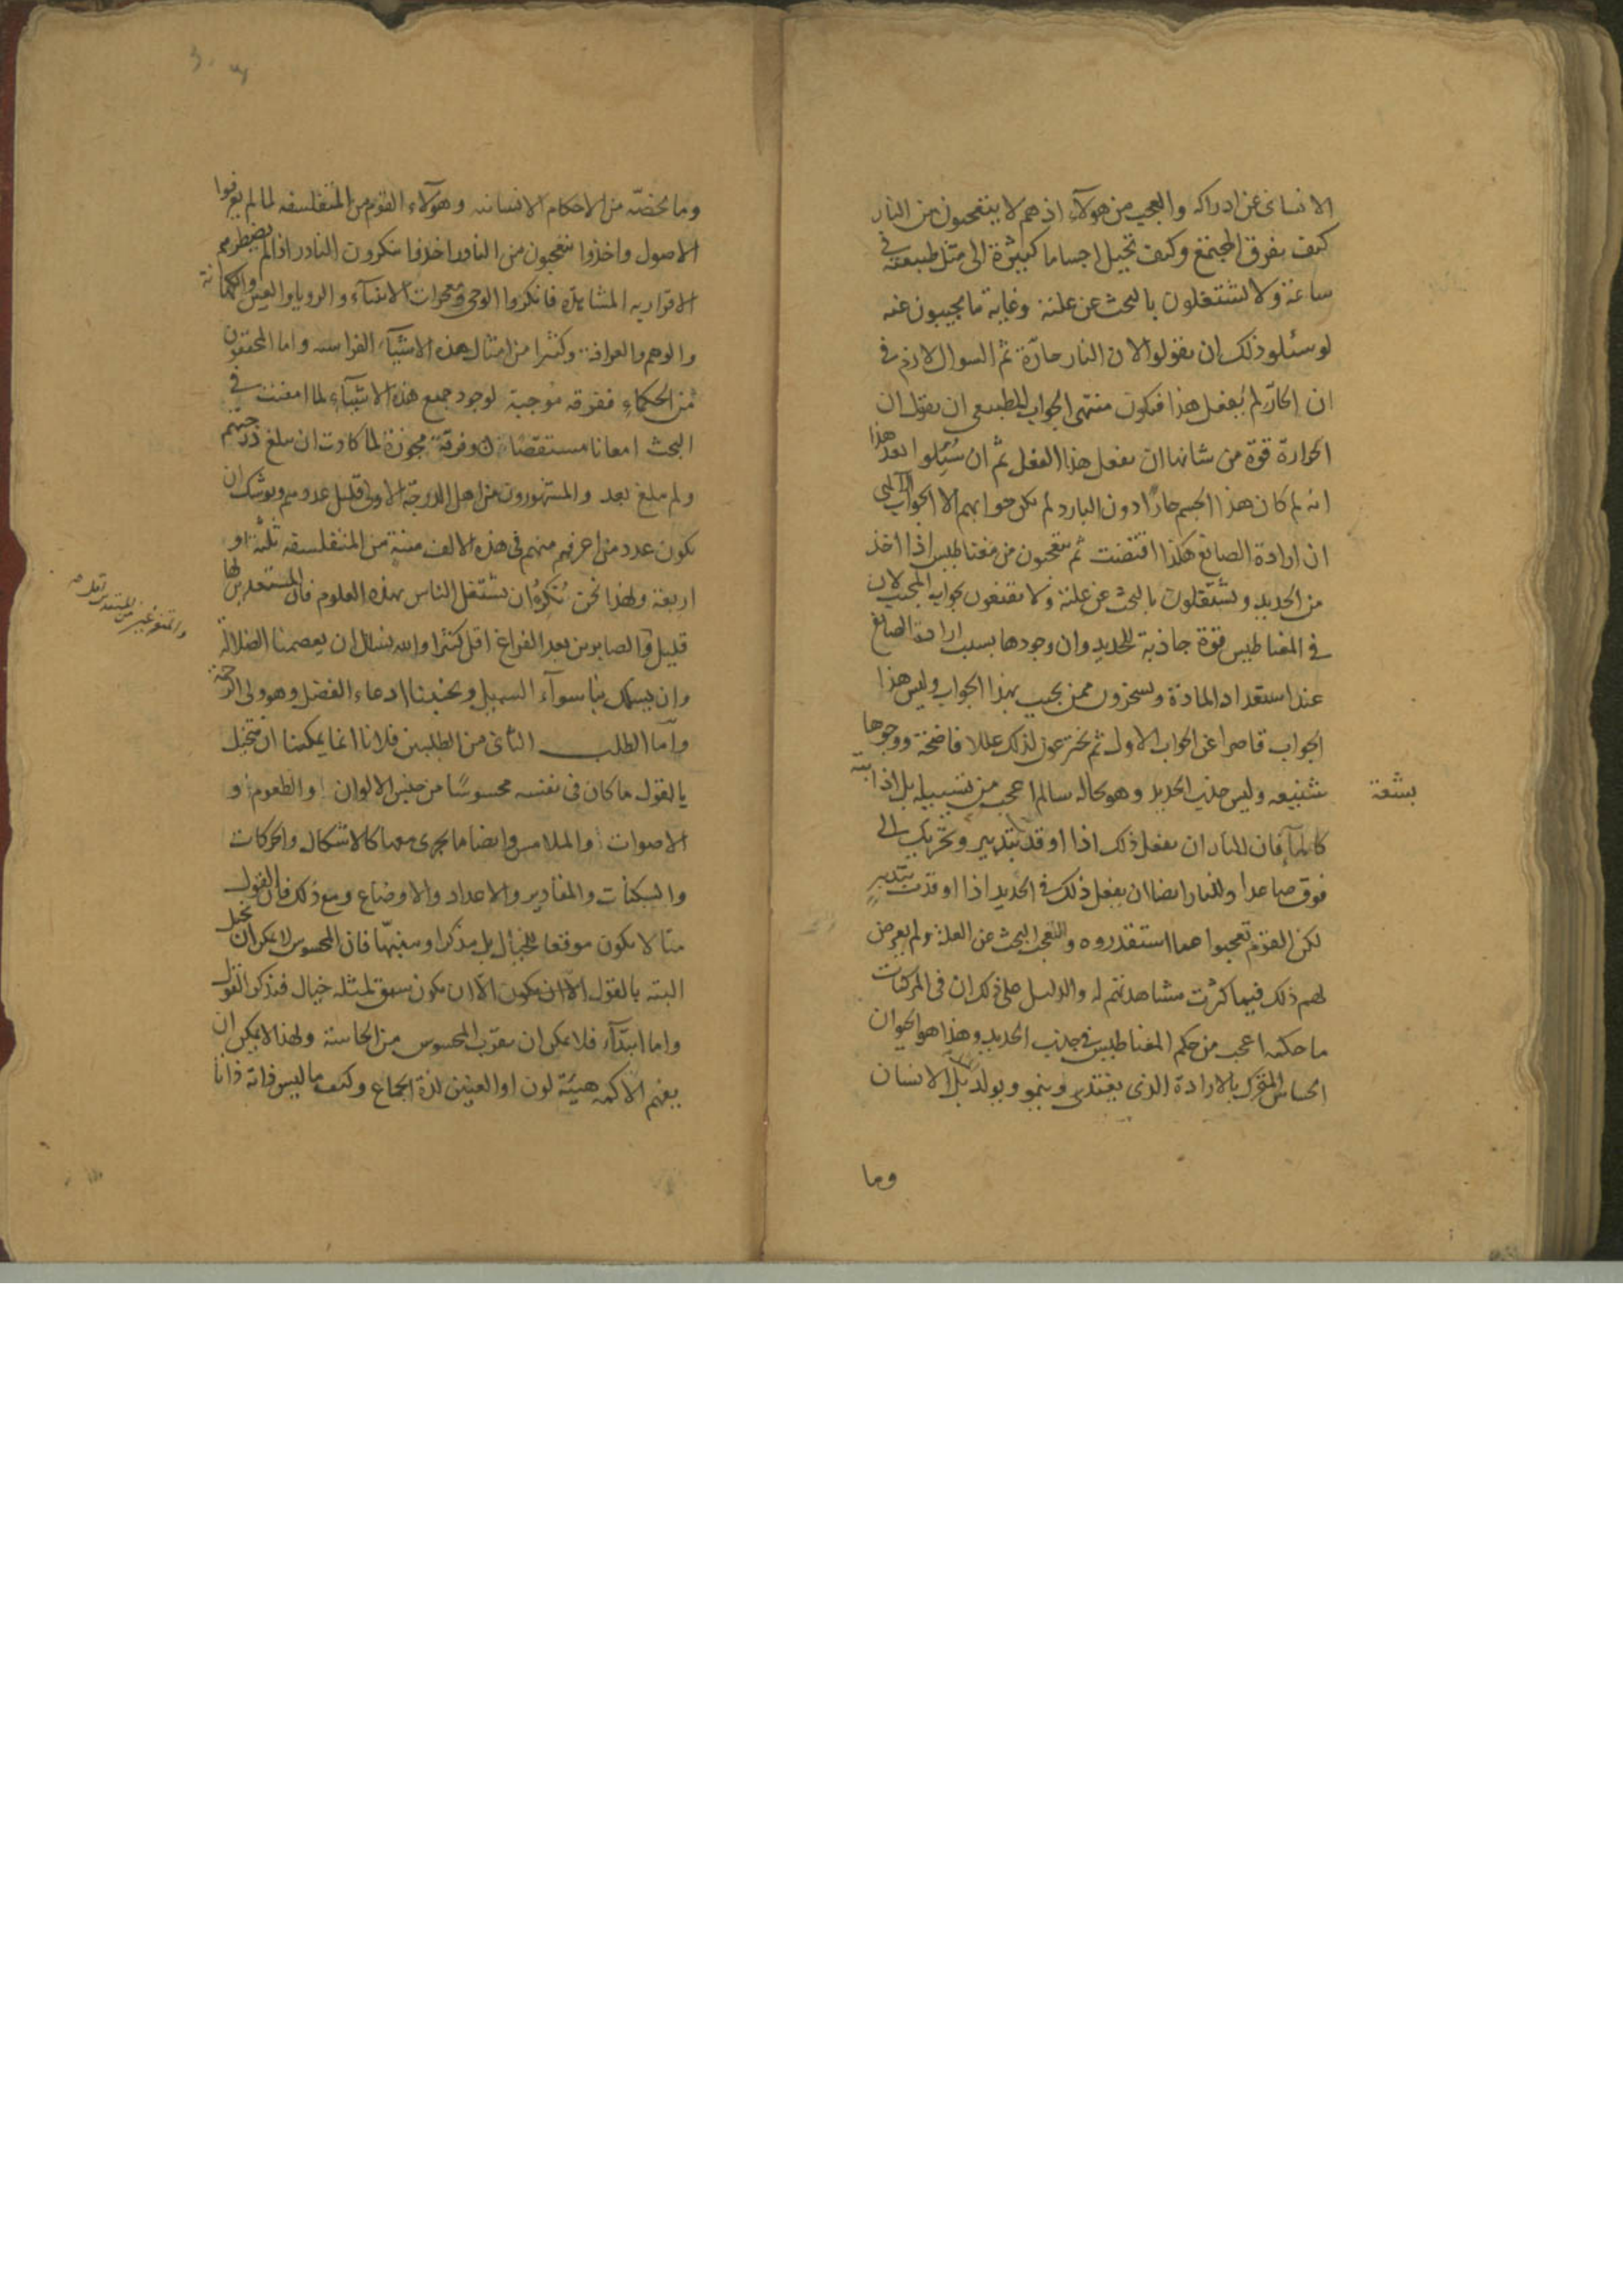 الانسانى عن ادراكه والعجب من هولآء اذ هم لا يتعجبون من النار
كيف يفرق المجتمع وكيف تحيل اجساما كثيرة الى مثل طبيعته فى
ساعة ولا يشتغلون بالبحث عن علته وغاية ما يجيبون عنه
لو سئلو ذلك ان يقولوا لان النار حارّة ثم السوال لازم فى
ان الحارّ لم يفعل هذا فيكون منتهى الجواب للطبيعى ان يقول ان
الحرارة قوة من شانها ان يفعل هذا الفعل ثم ان سُئلوا بعد هذا
انه لم كان هذا الجسم حارّا دون البارد لم يكن جوابهم الا الجواب الآلهى
ان ارادة الصانع هكذا اقتضت ثم يتعجبون من مغناطيس اذا اخذ
من الحديد ويشتغلون بالبحث عن علته ولا يقنعون بجواب المجيب لان
فى المغناطيس قوة جاذبة للحديد وان وجودها بسبب ارادة الصانع
عند استعداد المادة ويسخرون ممن يجيب بهذا الجواب وليس هذا
الجواب قاصرا عن الجواب الاول ثم يخترعون لذلك عللا فاضحة ووجوها
شنيعه وليس جذب الحديد وهو بحاله سالما اعجب من تسييله بل اذابته
كالمآء فان للنار ان يفعل ذلك اذا اوقد بتدبير وتحريك الى
بشعة
فوق صاعدا وللنار ايضا ان يفعل ذلك فى الحديد اذا اوقدت بتدبير
لكن القوم تعجبوا مما استندروه والتعجب البحث عن العلة ولم يعرض
لهم ذلك فيما كثرت مشاهدتهم له والدليل على ذلك ان فى المركبات
ما حكمه اعجب من حكم المغناطيس فى جذب الحديد وهذا هو الحيوان
الحساس المتحرك بالارادة الذى يغتذى وينمو ويولد بل الانسان
وما
وما يخصّه من الاحكام الانسانيه وهولآء القوم من المتفلسفه لما لم يعرفوا
الاصول واخذوا يتعجبون من النادر اخذوا ينكرون النادر اذا لم يضطرهم
الاقرار به المشاهدة فانكروا الوحى ومعجزات الانبيآء والرويا والعين والكهانة
والوهم والعرافة وكثيرا من امثال هذه الاشيآء الفراسه واما المحققون
من الحكماء ففرقه موجبة لوجود جميع هذه الاشيآء لما امعنت فى
البحث امعانا مستقصا وفرقة مجوزة لما كادت ان يبلغ درجتهم
ولم يبلغ بعد والمشهورون من اهل الدرجة الاولى قليل عددهم ويوشك ان
يكون عدد من اعرفهم منهم فى هذه الالف سنة من المتفلسفه ثلثة او
اربعة ولهذا نحن نُنكر ان يشتغل الناس بهذه العلوم فان المستعد لها
قليل والصابرين بعد الفراغ اقل كثيرا والله نسال ان يعصمنا الضلالة
وان يسلك بنا سوآء السبيل ويجنبنا ادعاء الفضل وهو ولى الرحمة
وامّا الطلب الثانى من الطلبين فلانا انما يمكننا ان نتخيل
بالقول ما كان فى نفسه محسوسًا من جنس الالوان والطعوم و
الاصوات والملامس وايضا ما يجرى معها كالاشكال والحركات
والسكنات والمقادير والاعداد والاوضاع ومع ذلك فان القول
منا لا يكون موقعا للخيال بل مذكرا ومنبّها فان المحسوس لا يمكن ان يخيل
البته بالقول الا ان يكون الا ان يكون سبق لمثله خيال فيذكر القول
واما ابتدآء فلا يمكن ان يقرب المحسوس من الحاسة ولهذا لا يمكن ان
يفهم الاكمه هيئة لون او العنين لذة الجماع وكيف ما ليس ذاته ذاتا